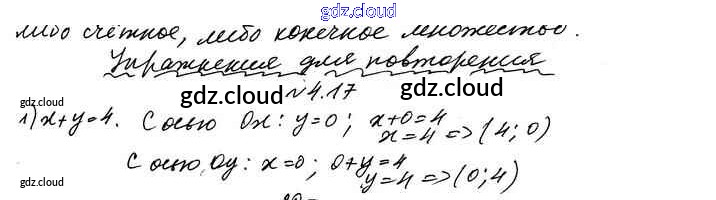 gdz.cloud
либо счётное, либо конечное множество.
gdz.cloud
Упражнения для повторения
gdz.cloud gdz.cloud gdz.cloud
№4.17
1) x+y=4. С осью Ox: y=0; x+0=4
x=4 => (4; 0)
С осью Oy: x=0; 0+y=4
y=4 => (0; 4)
gdz.cloud gdz.cloud